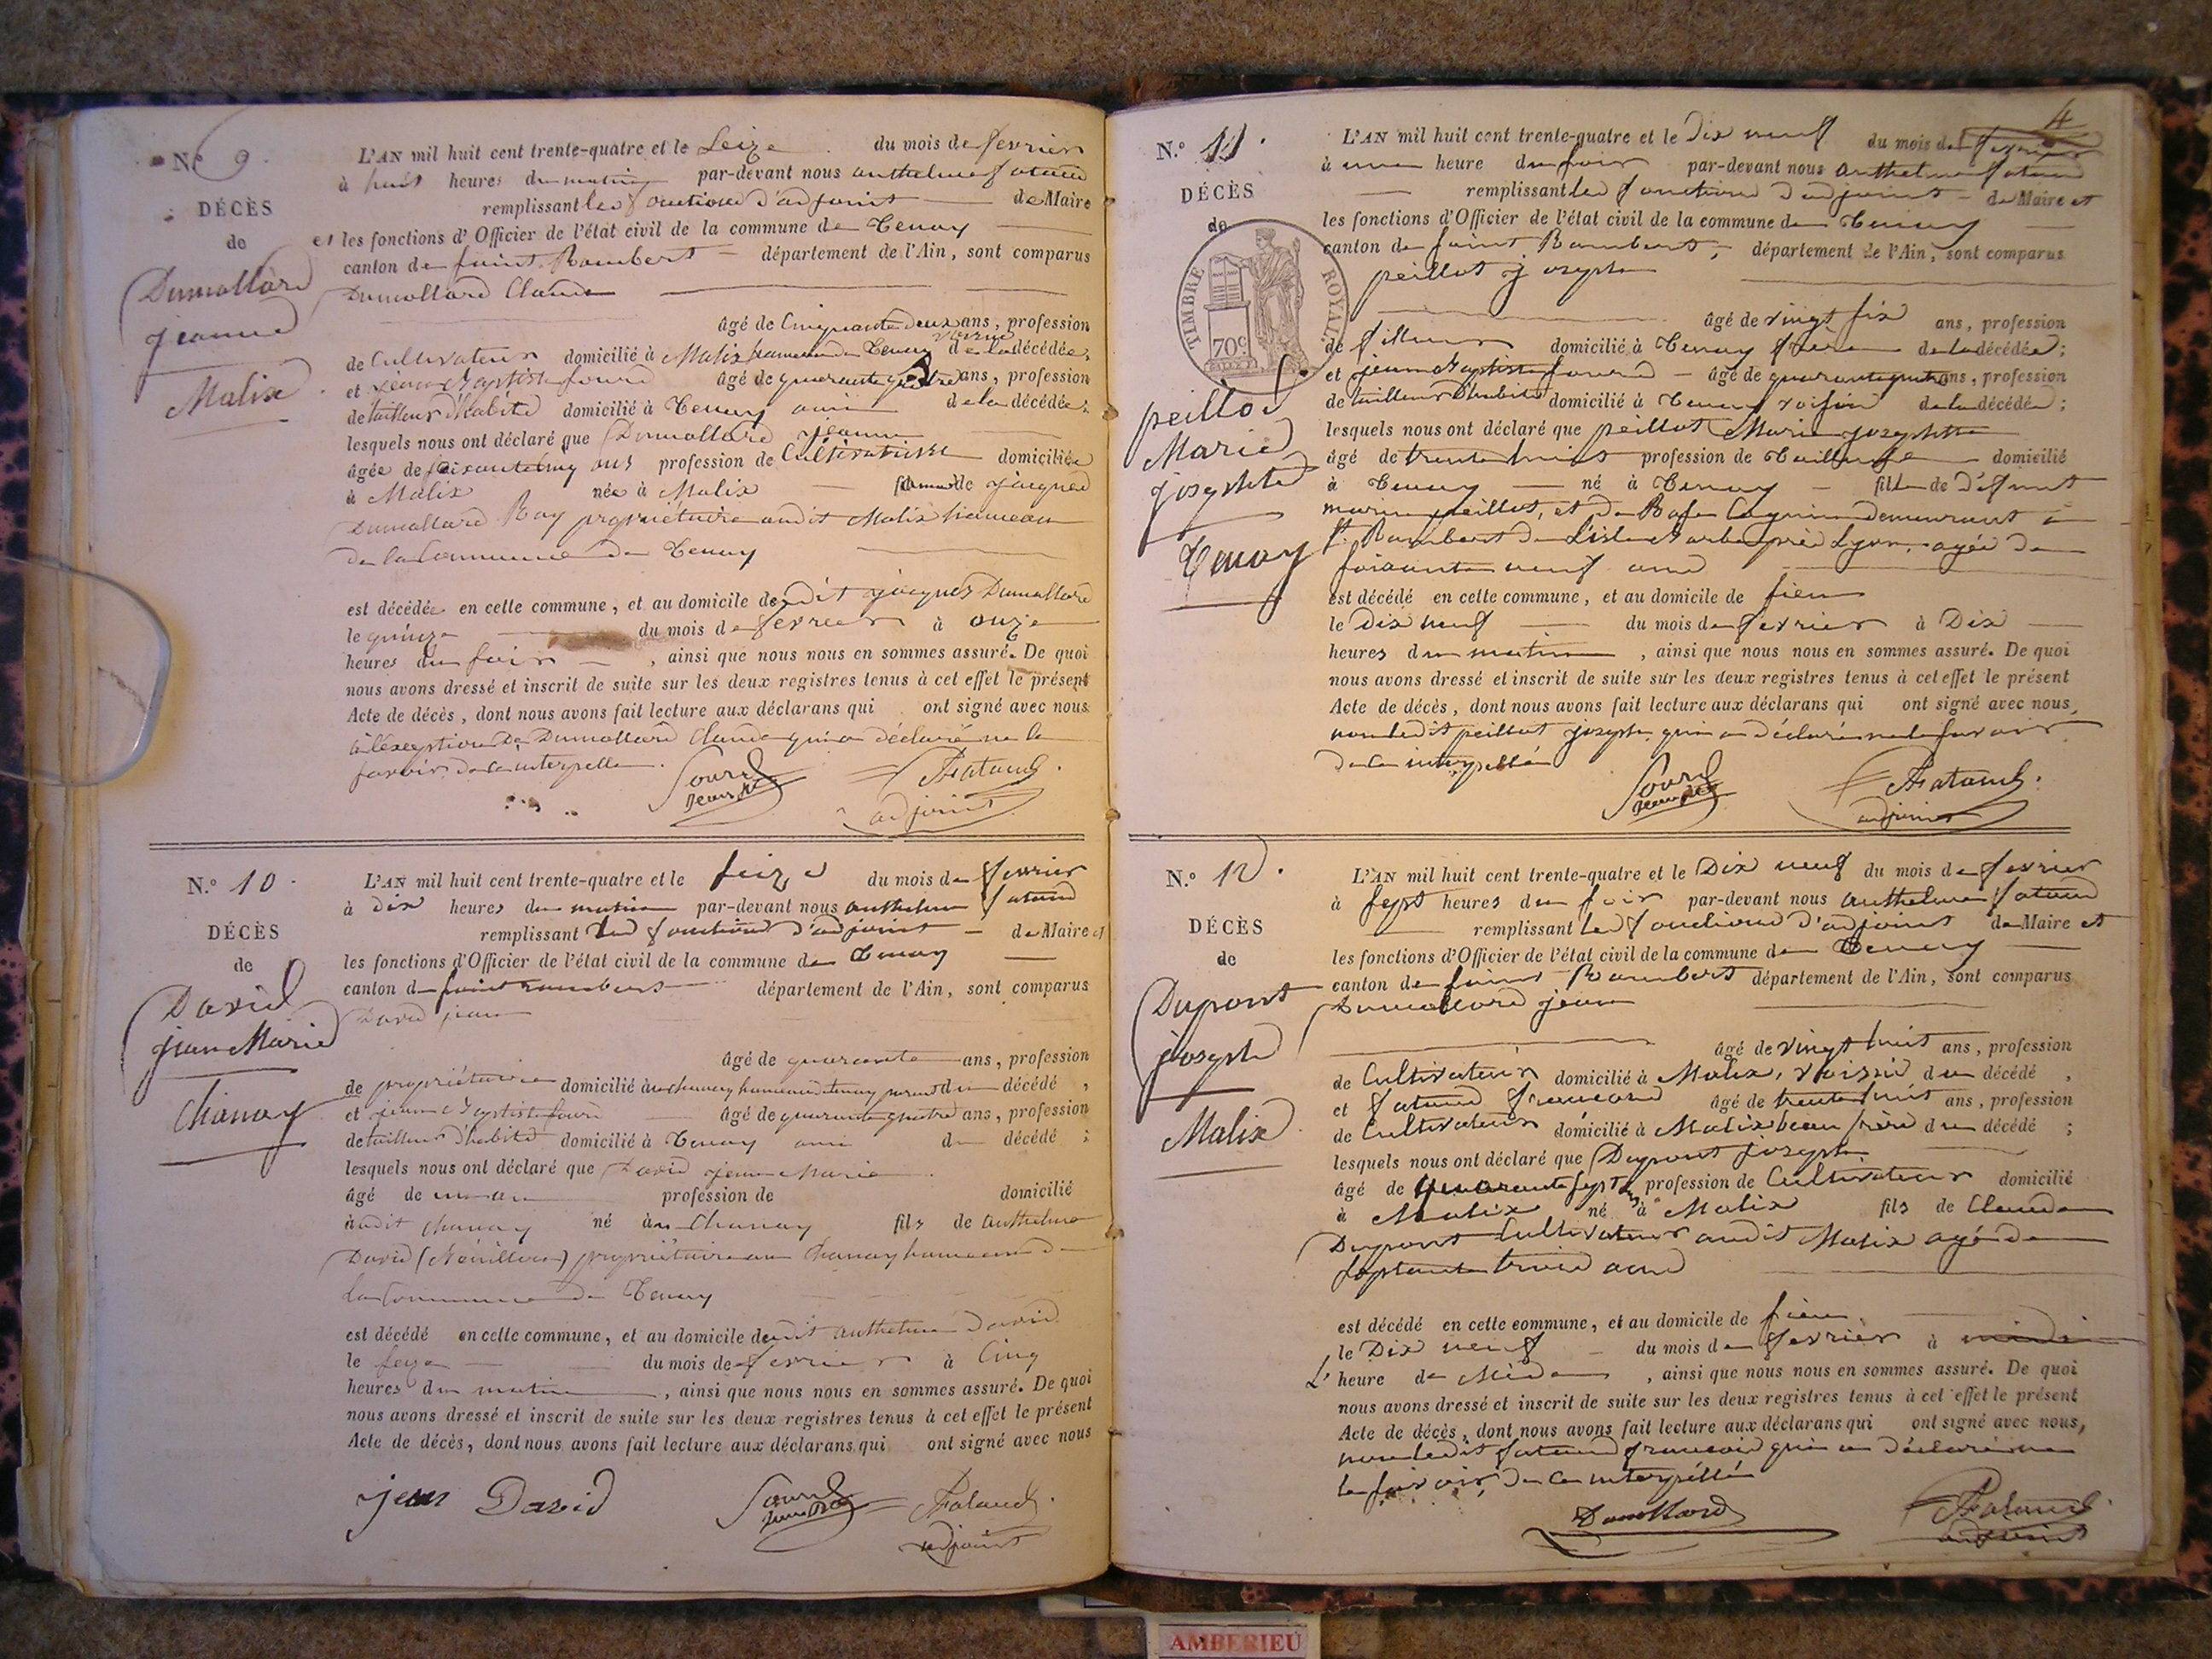 N.º 9.
DÉCÈS
de
Dumollard
jeanne
Malix
L'AN mil huit cent trente-quatre et le Seize du mois de fevrier
à huit heures du matin par-devant nous anthelme fataud
remplissant les fonctions d'adjoint de Maire
et les fonctions d'Officier de l'état civil de la commune de Tenay
canton de saint Rambert département de l'Ain, sont comparus
Dumollard Claude
âgé de Cinquante deux ans, profession
de Cultivateur domicilié à Malix hameau de Tenay de la décédée,
et jean Baptiste sourd âgé de quarante quatre ans, profession
de tailleur d'habits domicilié à Tenay ami de la décédée;
lesquels nous ont déclaré que Dumollard jeanne
âgée de soixante cinq ans profession de Cultivatrice domiciliée
à Malix née à Malix de jacques
Dumollard Ray propriétaire audit Malix hameau
de la Commune de Tenay
est décédée en cette commune, et au domicile dudit jacques Dumollard
le quinze du mois de fevrier à onze
heures du soir, ainsi que nous nous en sommes assuré. De quoi
nous avons dressé et inscrit de suite sur les deux registres tenus à cet effet le présent
Acte de décès, dont nous avons fait lecture aux déclarans qui ont signé avec nous
à l'exception de Dumollard Claude qui a déclaré ne le
savoir de ce interpellé.
Sourd
Fataud
adjoint
N.º 10.
DÉCÈS
de
David
jean Marie
Chanay
L'AN mil huit cent trente-quatre et le seize du mois de fevrier
à dix heures du matin par-devant nous anthelme fataud
remplissant les fonctions d'adjoint de Maire et
les fonctions d'Officier de l'état civil de la commune de Tenay
canton de saint rambert département de l'Ain, sont comparus
David jean
âgé de quarante ans, profession
de propriétaire domicilié au chanay hameau de tenay du décédé,
et jean Baptiste sourd âgé de quarante quatre ans, profession
de tailleur d'habits domicilié à Tenay ami du décédé;
lesquels nous ont déclaré que David jean Marie
âgé de un an profession de domicilié
audit chanay né au Chanay fils de anthelme
David propriétaire au Chanay hameau de
la Commune de Tenay
est décédé en cette commune, et au domicile dudit anthelme David
le seize du mois de fevrier à Cinq
heures du matin, ainsi que nous nous en sommes assuré. De quoi
nous avons dressé et inscrit de suite sur les deux registres tenus à cet effet le présent
Acte de décès, dont nous avons fait lecture aux déclarans qui ont signé avec nous
jean David
Sourd
Fataud
adjoint
4
N.º 11.
DÉCÈS
de
TIMBRE ROYAL
70c
peillot
Marie
josephte
Tenay
L'AN mil huit cent trente-quatre et le Dix neuf du mois de fevrier
à une heure du soir par-devant nous anthelme fataud
remplissant les fonctions d'adjoint de Maire et
les fonctions d'Officier de l'état civil de la commune de Tenay
canton de saint Rambert, département de l'Ain, sont comparus
peillot joseph
âgé de vingt six ans, profession
de fileur domicilié à Tenay frere de la décédée;
et jean Baptiste sourd âgé de quarante quatre ans, profession
de tailleur d'habits domicilié à Tenay voisin de la décédée;
lesquels nous ont déclaré que peillot Marie josephte
âgé de trente huit profession de Tailleuse domicilié
à Tenay né à Tenay fille de défunt
marin peillot, et de demeurant à
St Rambert de L'isle Barbe près Lyon, agée de
soixante neuf ans
est décédé en cette commune, et au domicile de sien
le Dix neuf du mois de fevrier à Dix
heures du matin, ainsi que nous nous en sommes assuré. De quoi
nous avons dressé et inscrit de suite sur les deux registres tenus à cet effet le présent
Acte de décès, dont nous avons fait lecture aux déclarans qui ont signé avec nous,
non ledit peillot joseph qui a déclaré ne le savoir
de ce interpellé
Sourd
Fataud
adjoint
N.º 12.
DÉCÈS
de
Dupont
joseph
Malix
L'AN mil huit cent trente-quatre et le Dix neuf du mois de fevrier
à sept heures du soir par-devant nous anthelme fataud
remplissant les fonctions d'adjoint de Maire et
les fonctions d'Officier de l'état civil de la commune de Tenay
canton de saint Rambert département de l'Ain, sont comparus
Dumollard jean
âgé de vingt huit ans, profession
de Cultivateur domicilié à Malix, du décédé,
et fataud francois âgé de trente huit ans, profession
de Cultivateur domicilié à Malix beau frère du décédé;
lesquels nous ont déclaré que Dupont joseph
âgé de quarante sept ans profession de Cultivateur domicilié
à Malix né à Malix fils de Claude
Dupont Cultivateur audit Malix agé de
septante trois ans
est décédé en cette commune, et au domicile de sien
le Dix neuf du mois de fevrier à
L'heure de Midi, ainsi que nous nous en sommes assuré. De quoi
nous avons dressé et inscrit de suite sur les deux registres tenus à cet effet le présent
Acte de décès, dont nous avons fait lecture aux déclarans qui ont signé avec nous,
non ledit fataud francois qui a déclaré ne
le savoir, de ce interpéllé
Dumollard
Fataud
adjoint
AMBERIEU